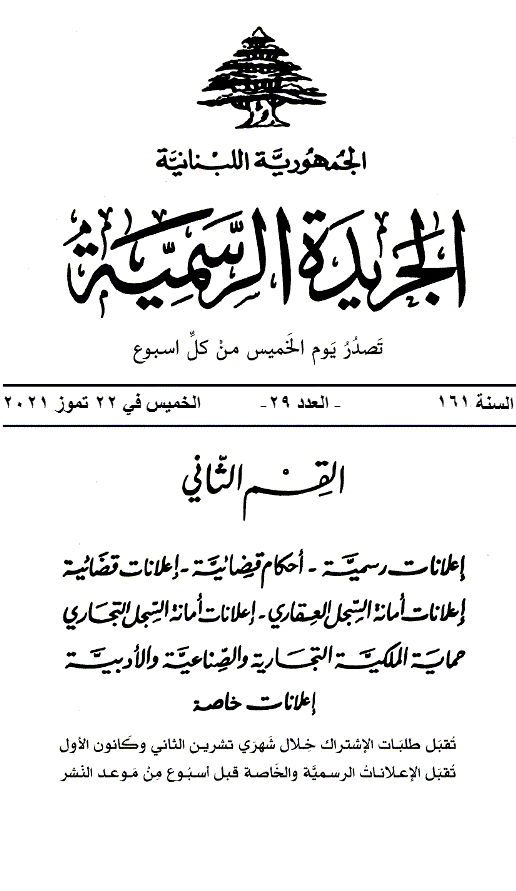 الجُمهُوريَّة اللبْنانيَّة
الجَريدَة الرَّسمِيَّة
تَصدُرُ يَوم الخَميس منْ كلِّ اسبوع
السنة ١٦١ - العدد ٢٩ - الخميس في ٢٢ تموز ٢٠٢١
القِسْم الثّاني
إعلانات رسميَّة - أحكام قضائيَّة - إعلانات قضائية
إعلانات أمانة السِّجل العقاري - إعلانات أمانة السِّجل التجاري
حماية الملكيَّة التجارية والصِّناعيَّة والأدبيَّة
إعلانات خاصة
تُقبَل طلبَات الإشتراك خِلال شَهرَي تشرين الثاني وكَانون الأول
تُقبَل الإعلاناتُ الرسميَّة والخَاصة قبل أسبُوع مِنْ مَوعد النَشر